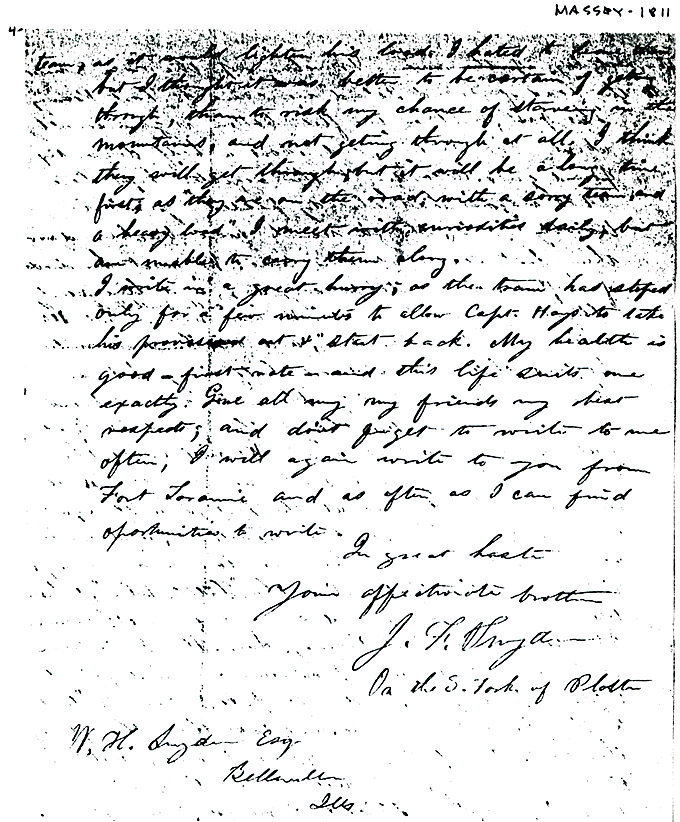 MASSEY - 1811
4-
team, as it would lighten his load. I hated to leave
but I thought it was better to be certain of geting
through, than to risk my chance of starving in the
mountains, and not geting through at all, I think
they will get through, but it will be a long time
first, as "they are on the road, with a sorry team and
a heavy load". I meet with curiosities daily, but
am unable to carry them along.
I write in a great hurry, as the train has stoped
only for a few minuts to allow Capt. Hays to take
his provisions out & start back. My health is
good - first rate - and this life suits me
exactly. Give all my my friends my best
respects, and dont forget to write to me
often; I will again write to you from
Fort Laramie and as often as I can find
oportunities to write.
In great haste
Your affectionate brother
J. F. Snyder
On the S. Fork of Platte
W. H. Snyder Esq.
Belleville
Ills.